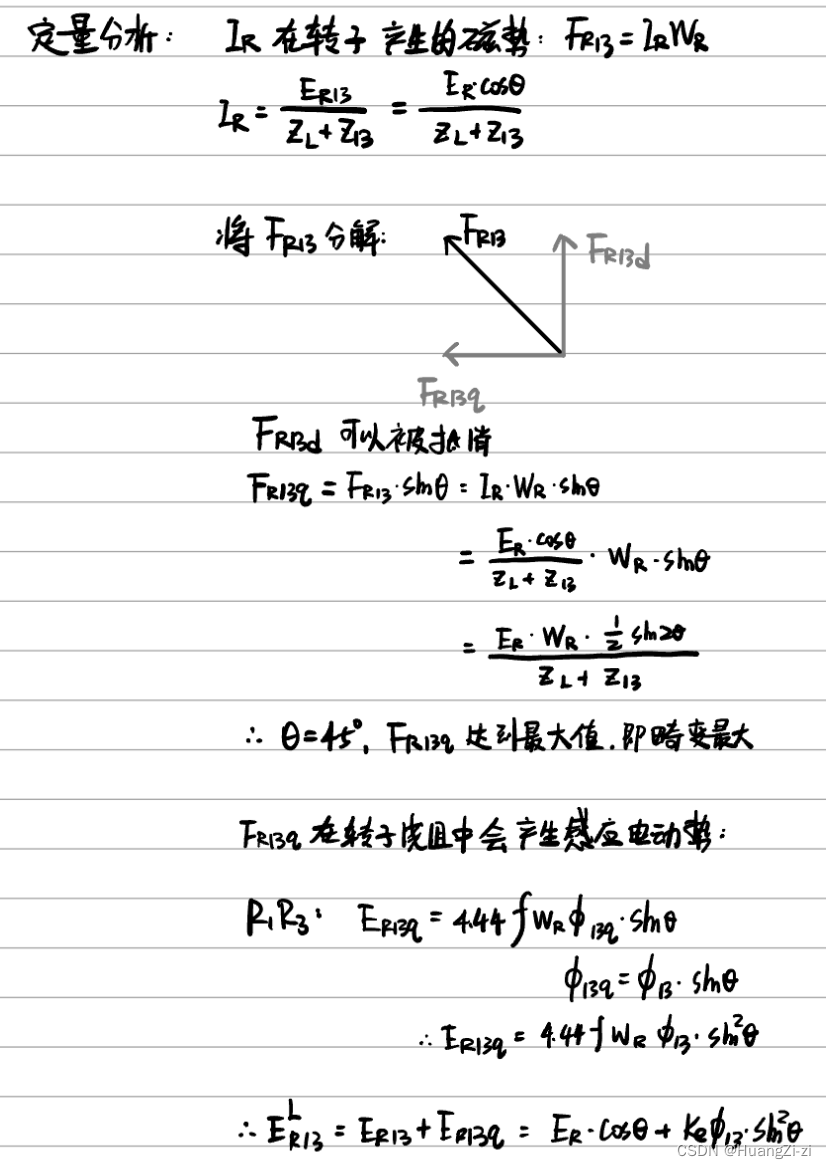 定量分析: I_R 在转子产生的磁势: F_R13 = I_R W_R
I_R = E_R13 / (Z_L + Z_13) = E_R·cosθ / (Z_L + Z_13)
将 F_R13 分解:
F_R13
F_R13d
F_R13q
F_R13d 可以被抵消
F_R13q = F_R13·sinθ = I_R·W_R·sinθ
= E_R·cosθ / (Z_L + Z_13) · W_R·sinθ
= E_R·W_R·1/2 sin2θ / (Z_L + Z_13)
∴ θ=45°, F_R13q 达到最大值,即畸变最大
F_R13q 在转子绕组中会产生感应电动势:
R₁R₃: E_R13q = 4.44 f W_R ϕ_13q·sinθ
ϕ_13q = ϕ_13·sinθ
∴ E_R13q = 4.44 f W_R ϕ_13·sin²θ
∴ E^L_R13 = E_R13 + E_R13q = E_R·cosθ + K_e ϕ_13·sin²θ
CSDN @HuangZi-zi